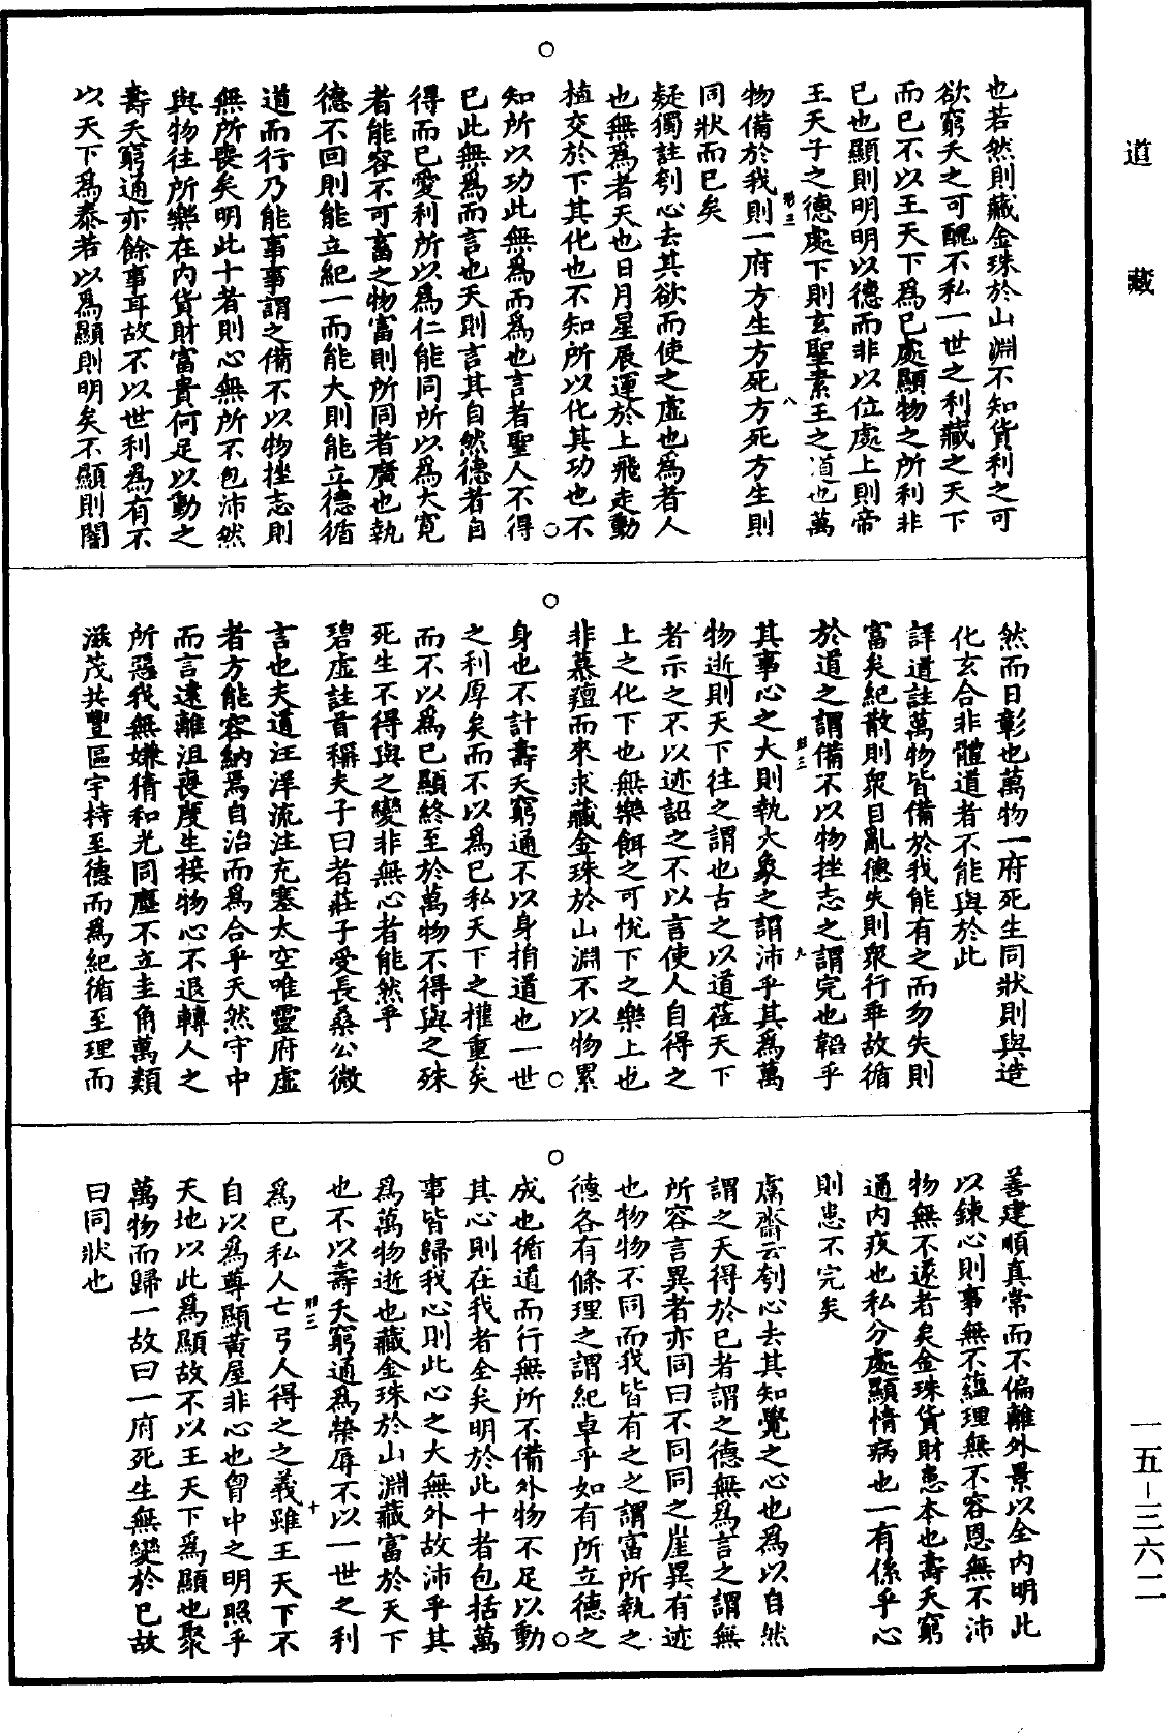 道藏
也若然則藏金珠於山淵不知貨利之可
欲窮夭之可醜不私一世之利藏之天下
而已不以王天下爲已處顯物之所利非
已也顯則明明以德而非以位處上則帝
王天子之德處下則玄聖素王之道也萬
物備於我則一府方生方死方死方生則
同狀而已矣
疑獨註刳心去其欲而使之虛也爲者人
也無爲者天也日月星辰運於上飛走動
植交於下其化也不知所以化其功也不
知所以功此無爲而爲也言者聖人不得
已此無爲而言也天則言其自然德者自
得而已愛利所以爲仁能同所以爲大寬
者能容不可畜之物富則所同者廣也執
德不回則能立紀一而能大則能立德循
道而行乃能事事謂之備不以物挫志則
無所喪矣明此十者則心無所不包沛然
與物往所樂在内貨財富貴何足以動之
壽夭窮通亦餘事耳故不以世利爲有不
以天下爲泰若以爲顯則明矣不顯則闇
然而日彰也萬物一府死生同狀則與造
化玄合非體道者不能與於此
詳道註萬物皆備於我能有之而勿失則
富矣紀散則衆目亂德失則衆行乖故循
於道之謂備不以物挫志之謂完也韜乎
其事心之大則執大象之謂沛乎其爲萬
物逝則天下往之謂也古之以道莅天下
者示之不以迹詔之不以言使人自得之
上之化下也無樂餌之可悅下之樂上也
非慕羶而來求藏金珠於山淵不以物累
身也不計壽夭窮通不以身捐道也一世
之利厚矣而不以爲已私天下之權重矣
而不以爲已顯終至於萬物不得與之殊
死生不得與之變非無心者能然乎
碧虛註首稱夫子曰者莊子受長桑公微
言也夫道汪洋流注充塞太空唯靈府虛
者方能容納焉自治而爲合乎天然守中
而言遠離沮喪度生接物心不退轉人之
所惡我無嫌猜和光同塵不立圭角萬類
滋茂共豐區宇持至德而爲紀循至理而
善建順真常而不偏離外景以全内明此
以鍊心則事無不蘊理無不容恩無不沛
物無不遂者矣金珠貨財患本也壽夭窮
通内疚也私分處顯情病也一有係乎心
則患不完矣
鬳齋云刳心去其知覺之心也爲以自然
謂之天得於已者謂之德無爲言之謂無
所容言異者亦同曰不同同之崖異有迹
也物物不同而我皆有之之謂富所執之
德各有條理之謂紀卓乎如有所立德之
成也循道而行無所不備外物不足以動
其心則在我者全矣明於此十者包括萬
事皆歸我心則此心之大無外故沛乎其
爲萬物逝也藏金珠於山淵藏富於天下
也不以壽夭窮通爲榮辱不以一世之利
爲已私人亡弓人得之之義雖王天下不
自以爲尊顯黃屋非心也胷中之明照乎
天地以此爲顯故不以王天下爲顯也聚
萬物而歸一故曰一府死生無變於已故
曰同狀也
一五-三六二